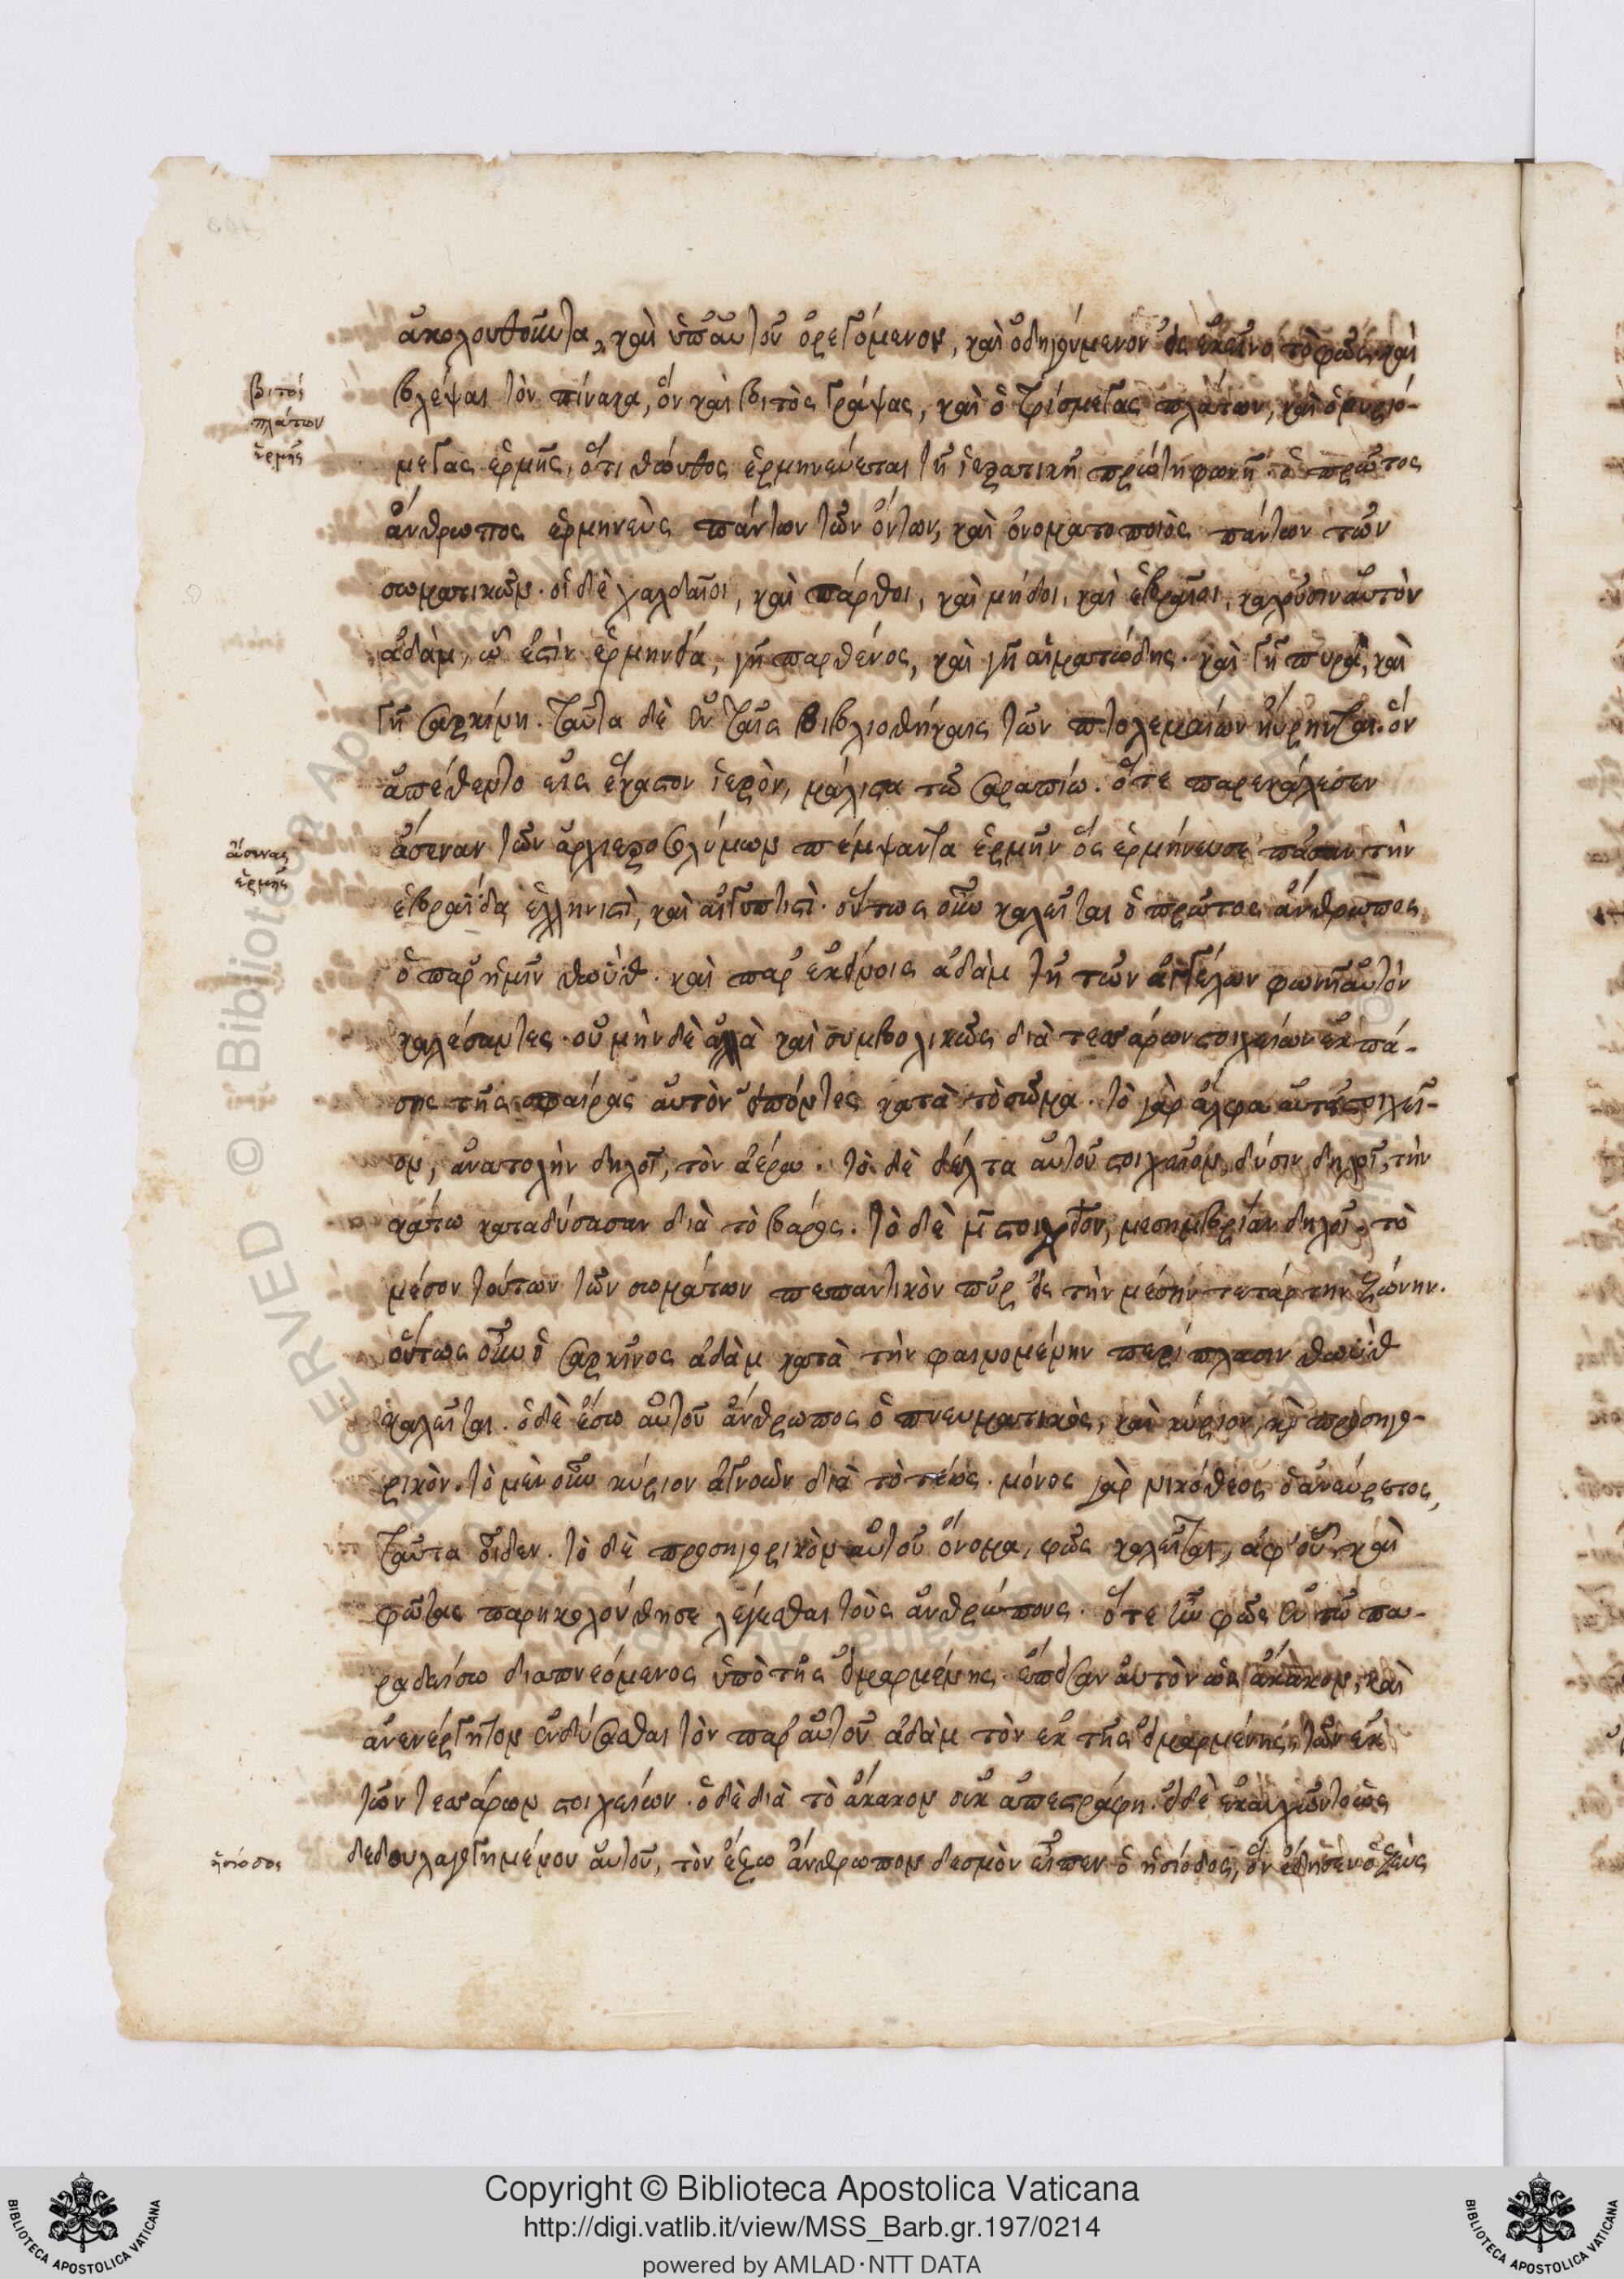 ἀκολουθοῦντα, καὶ ὑπ' αὐτοῦ ὀρεγόμενον, καὶ ὁδηγούμενον εἰς ἐκεῖνο τὸ φῶς, καὶ
βιτός
πλάτων
ἑρμῆς
βλέψαι τὸν πίνακα, ὃν καὶ βιτὸς γράψας, καὶ ὁ τρίσμεγας πλάτων, καὶ ὁ μυριό-
μεγας ἑρμῆς, ὅτι θώυθος ἑρμηνεύεται τῇ ἱερατικῇ πρώτῃ φωνῇ ὁ πρῶτος
ἄνθρωπος ἑρμηνεὺς πάντων τῶν ὄντων, καὶ ὀνοματοποιὸς πάντων τῶν
σωματικῶν. οἱ δὲ χαλδαῖοι, καὶ πάρθοι, καὶ μήδοι, καὶ ἑβραῖοι, καλοῦσιν αὐτὸν
ἀδάμ, ὥ ἐστιν ἑρμηνεία, γῆ παρθένος, καὶ γῆ αἱματώδης. καὶ γῆ πυρὰ, καὶ
γῆ σαρκίνη. ταῦτα δὲ ἐν ταῖς βιβλιοθήκαις τῶν πτολεμαίων ηὕρηνται. ὃν
ἀπέθεντο εἰς ἕκαστον ἱερὸν, μάλιστα τῶ σαραπίω. ὅτε παρεκάλεσεν
ἄσενας
ἑρμῆς
ἄσεναν τῶν ἀρχιεροσολύμων πέμψαντα ἑρμῆν ὃς ἑρμήνευσε πᾶσαν τὴν
ἑβραΐδα ἑλληνιστὶ, καὶ αἰγυπτιστὶ. οὕτως οὖν καλεῖται ὁ πρῶτος ἄνθρωπος
ὁ παρ' ἡμῖν θωὺθ. καὶ παρ' ἐκείνοις ἀδὰμ τῇ τῶν ἀγγέλων φωνῇ αὐτὸν
καλέσαντες. οὐ μὴν δὲ ἀλλὰ καὶ συμβολικῶς διὰ τεσσάρων στοιχείων ἐκ πά-
σης τῆς σφαίρας αὐτὸν εἰπόντες κατὰ τὸ σῶμα. τὸ γὰρ ἄλφα αὐτοῦ στοιχεῖ-
ον, ἀνατολὴν δηλοῖ, τὸν ἀέρα. τὸ δὲ δέλτα αὐτοῦ στοιχεῖον, δύσιν δηλοῖ, τὴν
κάτω καταδύσασαν διὰ τὸ βάρος. τὸ δὲ μ στοιχεῖον, μεσημβρίαν δηλοῖ, τὸ
μέσον τούτων τῶν σωμάτων πεπαντικὸν πῦρ εἰς τὴν μέσην τετάρτην ζώνην.
οὕτως οὖν ὁ σαρκῖνος ἀδὰμ κατὰ τὴν φαινομένην περίπλασιν θωὺθ
καλεῖται. ὁ δὲ ἔσω αὐτοῦ ἄνθρωπος ὁ πνευματικὸς, καὶ κύριον, καὶ προσηγο-
ρικὸν. τὸ μὲν οὖν κύριον ἀγνοῶν διὰ τὸ τέως. μόνος γὰρ νικόθεος ὁ ἀνεύρετος,
ταῦτα οἶδεν. τὸ δὲ προσηγορικὸν αὐτοῦ ὄνομα, φῶς καλεῖται, ἀφ' οὗ καὶ
φῶτας παρηκολούθησε λέγεσθαι τοὺς ἀνθρώπους. ὅτε ἦν φῶς ἐν τῶ πα-
ραδείσω διαπνεόμενος ὑπὸ τῆς εἱμαρμένης. ἔπεισαν αὐτὸν ὡς ἄκακον, καὶ
ἀνενέργητον ἐνδύσασθαι τὸν παρ' αὐτοῦ ἀδὰμ τὸν ἐκ τῆς εἱμαρμένης, τῶν ἐκ
τῶν τεσσάρων στοιχείων. ὁ δὲ διὰ τὸ ἄκακον οὐκ ἀπεστράφη. οἱ δὲ ἐκαυχῶντο ὡς
ἡσίοδος
δεδουλαγωγημένου αὐτοῦ, τὸν ἔξω ἄνθρωπον δεσμὸν εἶπεν ὁ ἡσίοδος, ὃν ἔδησεν ὁ ζεὺς
Copyright © Biblioteca Apostolica Vaticana
http://digi.vatlib.it/view/MSS_Barb.gr.197/0214
powered by AMLAD·NTT DATA
BIBLIOTECA APOSTOLICA VATICANA
BIBLIOTECA APOSTOLICA VATICANA